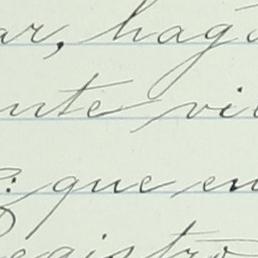 ar, haga
nte vi
: que en
egistro